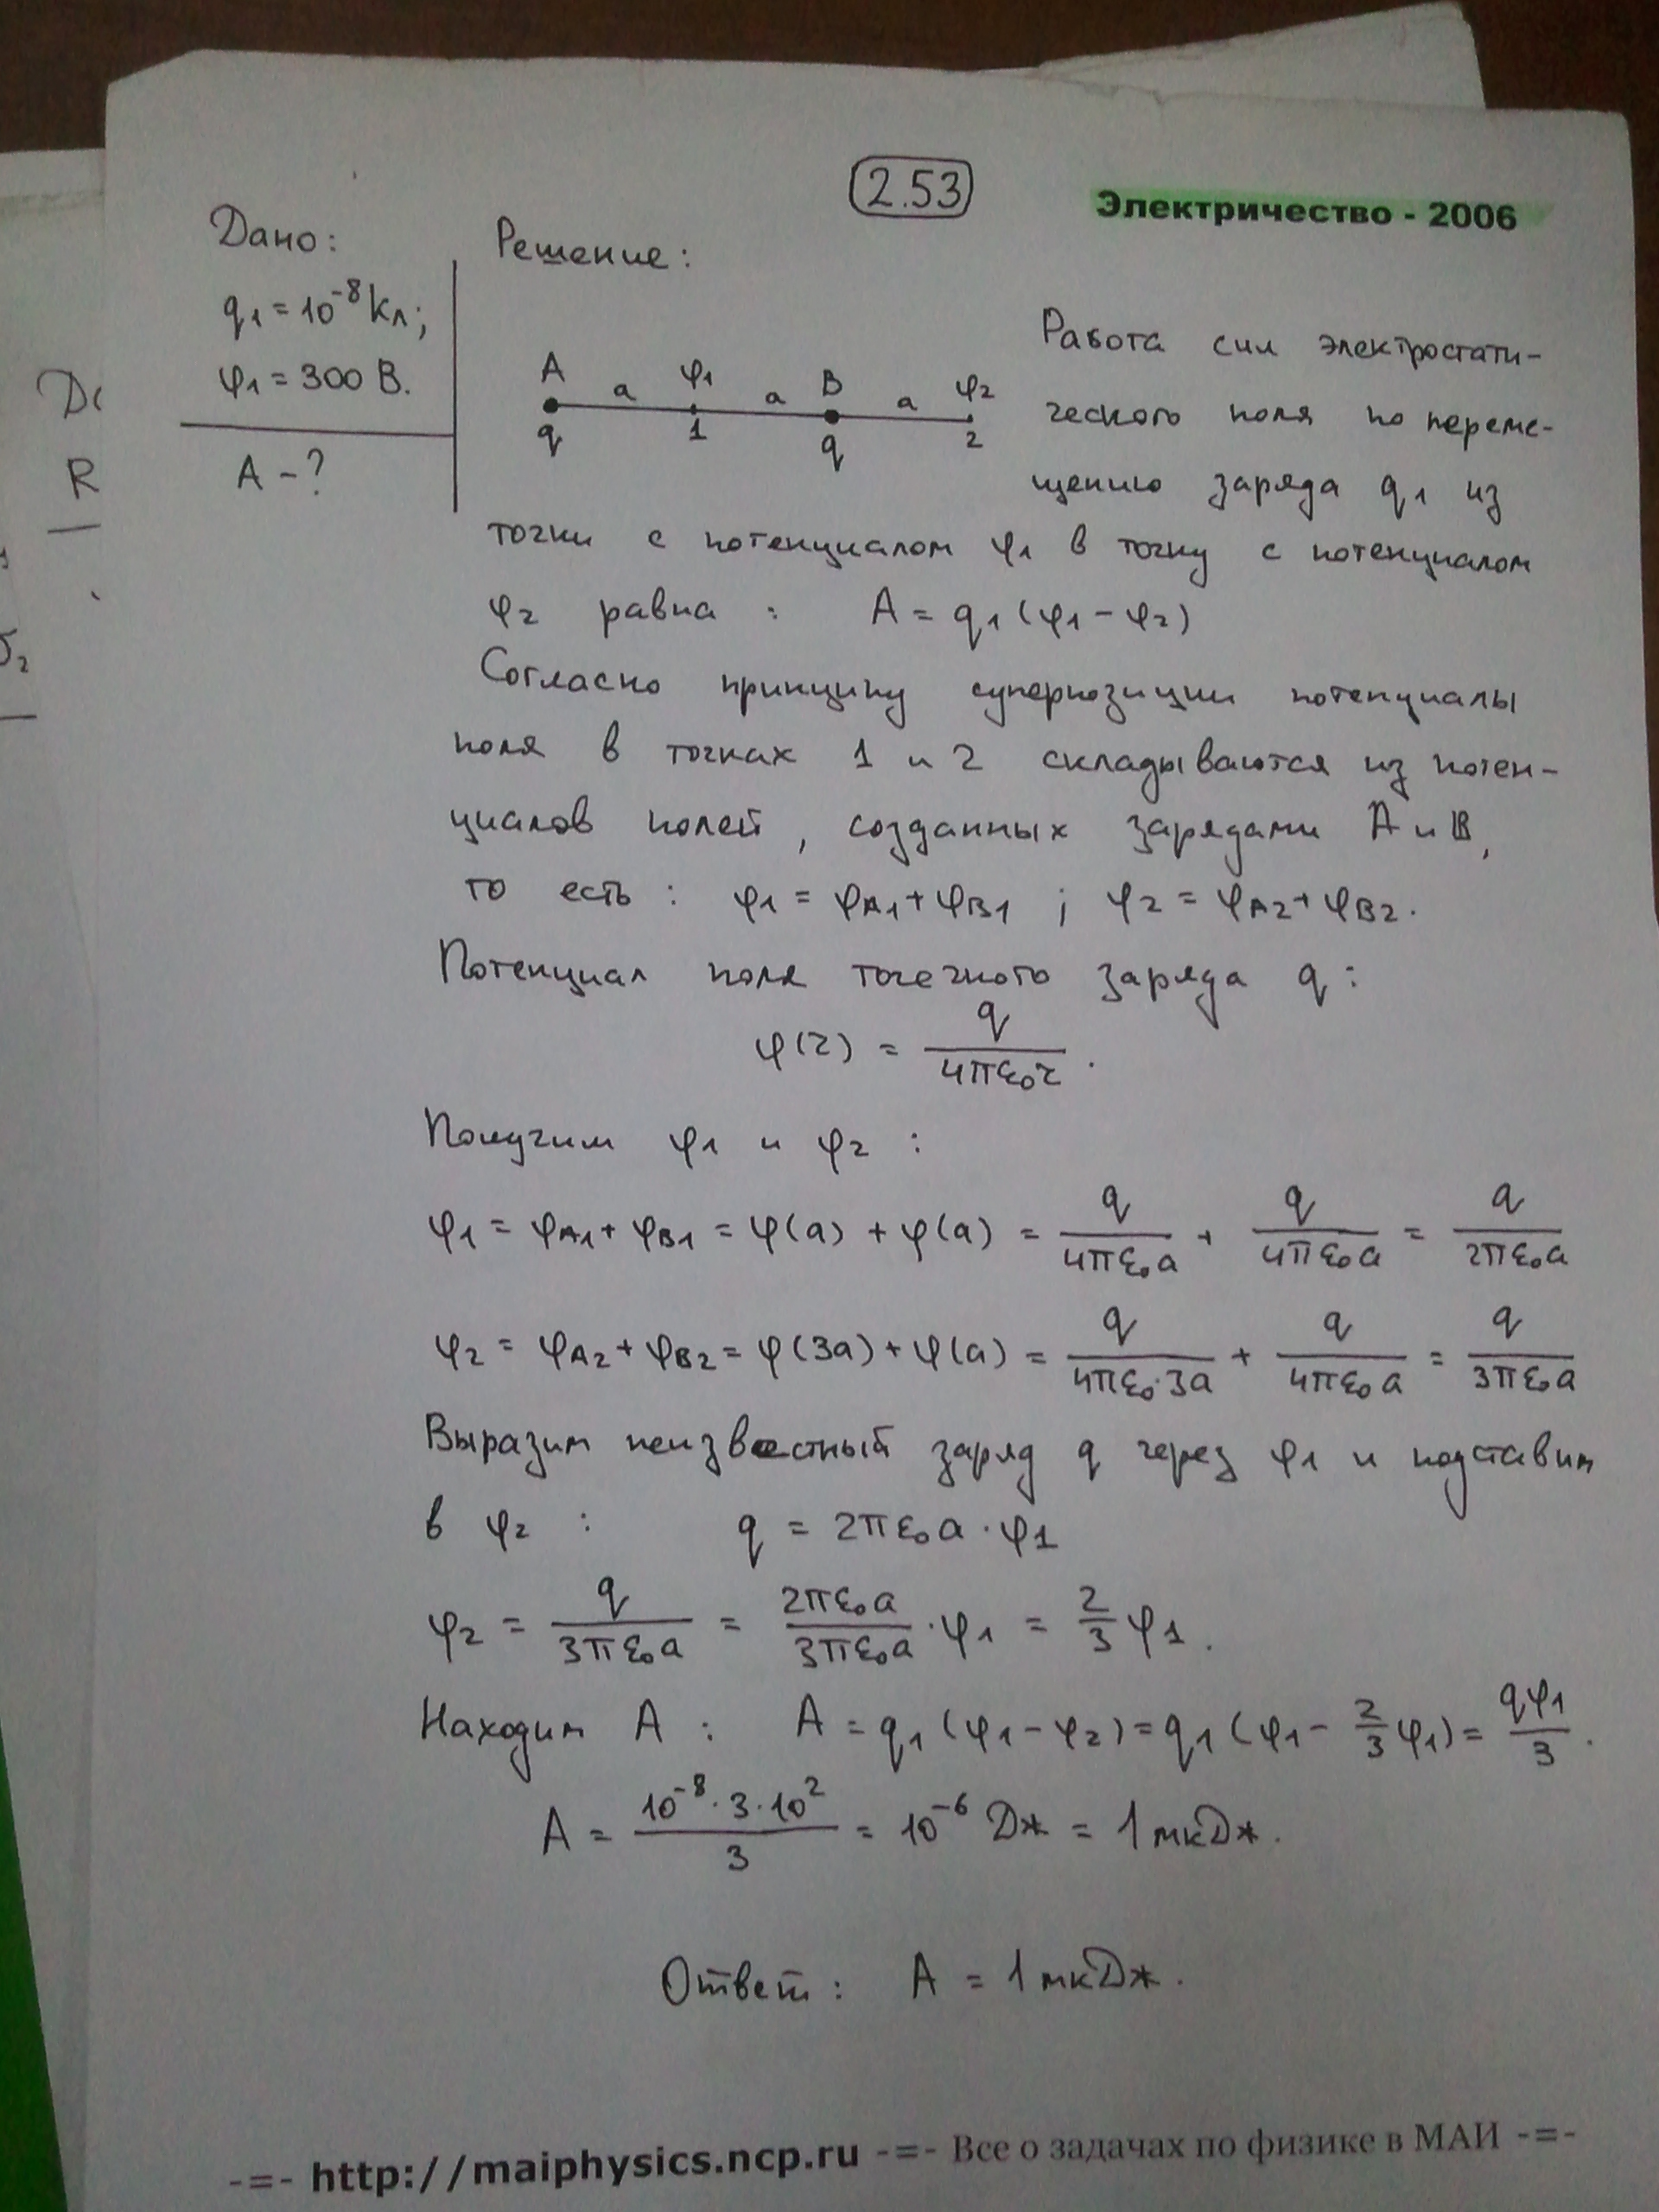 2.53
Электричество - 2006
Дано:
q₁ = 10⁻⁸ Кл;
φ₁ = 300 В.
A - ?
Решение:
A a φ₁ a B a φ₂
q 1 q 2
Работа сил электростати-
ческого поля по переме-
щению заряда q₁ из
точки с потенциалом φ₁ в точку с потенциалом
φ₂ равна : A = q₁(φ₁ - φ₂)
Согласно принципу суперпозиции потенциалы
поля в точках 1 и 2 складываются из потен-
циалов полей, созданных зарядами A и B,
то есть : φ₁ = φA1 + φB1 ; φ₂ = φA2 + φB2.
Потенциал поля точечного заряда q :
φ(r) = q/(4πε₀r).
Получим φ₁ и φ₂ :
φ₁ = φA1 + φB1 = φ(a) + φ(a) = q/(4πε₀a) + q/(4πε₀a) = q/(2πε₀a)
φ₂ = φA2 + φB2 = φ(3a) + φ(a) = q/(4πε₀·3a) + q/(4πε₀a) = q/(3πε₀a)
Выразим неизвестный заряд q через φ₁ и подставим
в φ₂ : q = 2πε₀a · φ₁
φ₂ = q/(3πε₀a) = (2πε₀a)/(3πε₀a) · φ₁ = 2/3 φ₁.
Находим A : A = q₁(φ₁ - φ₂) = q₁(φ₁ - 2/3 φ₁) = qφ₁/3.
A = (10⁻⁸ · 3 · 10²)/3 = 10⁻⁶ Дж = 1 мкДж.
Ответ : A = 1 мкДж.
-=- http://maiphysics.ncp.ru -=- Все о задачах по физике в МАИ -=-